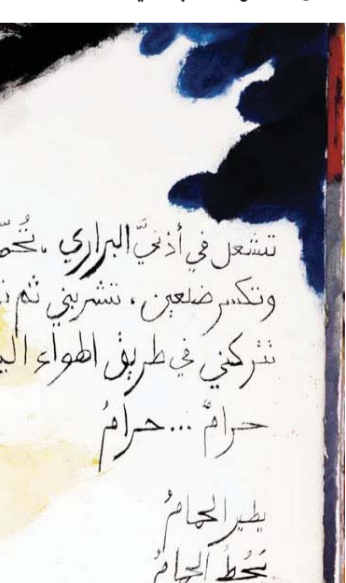 تشعل في أذنيَّ البراري،
وتكسر ضلعين، تشربني ثم
تتركني في طريق الهواء
حرامٌ ... حرامُ
يطير الحمامُ
يَحُطُّ الحمامُ